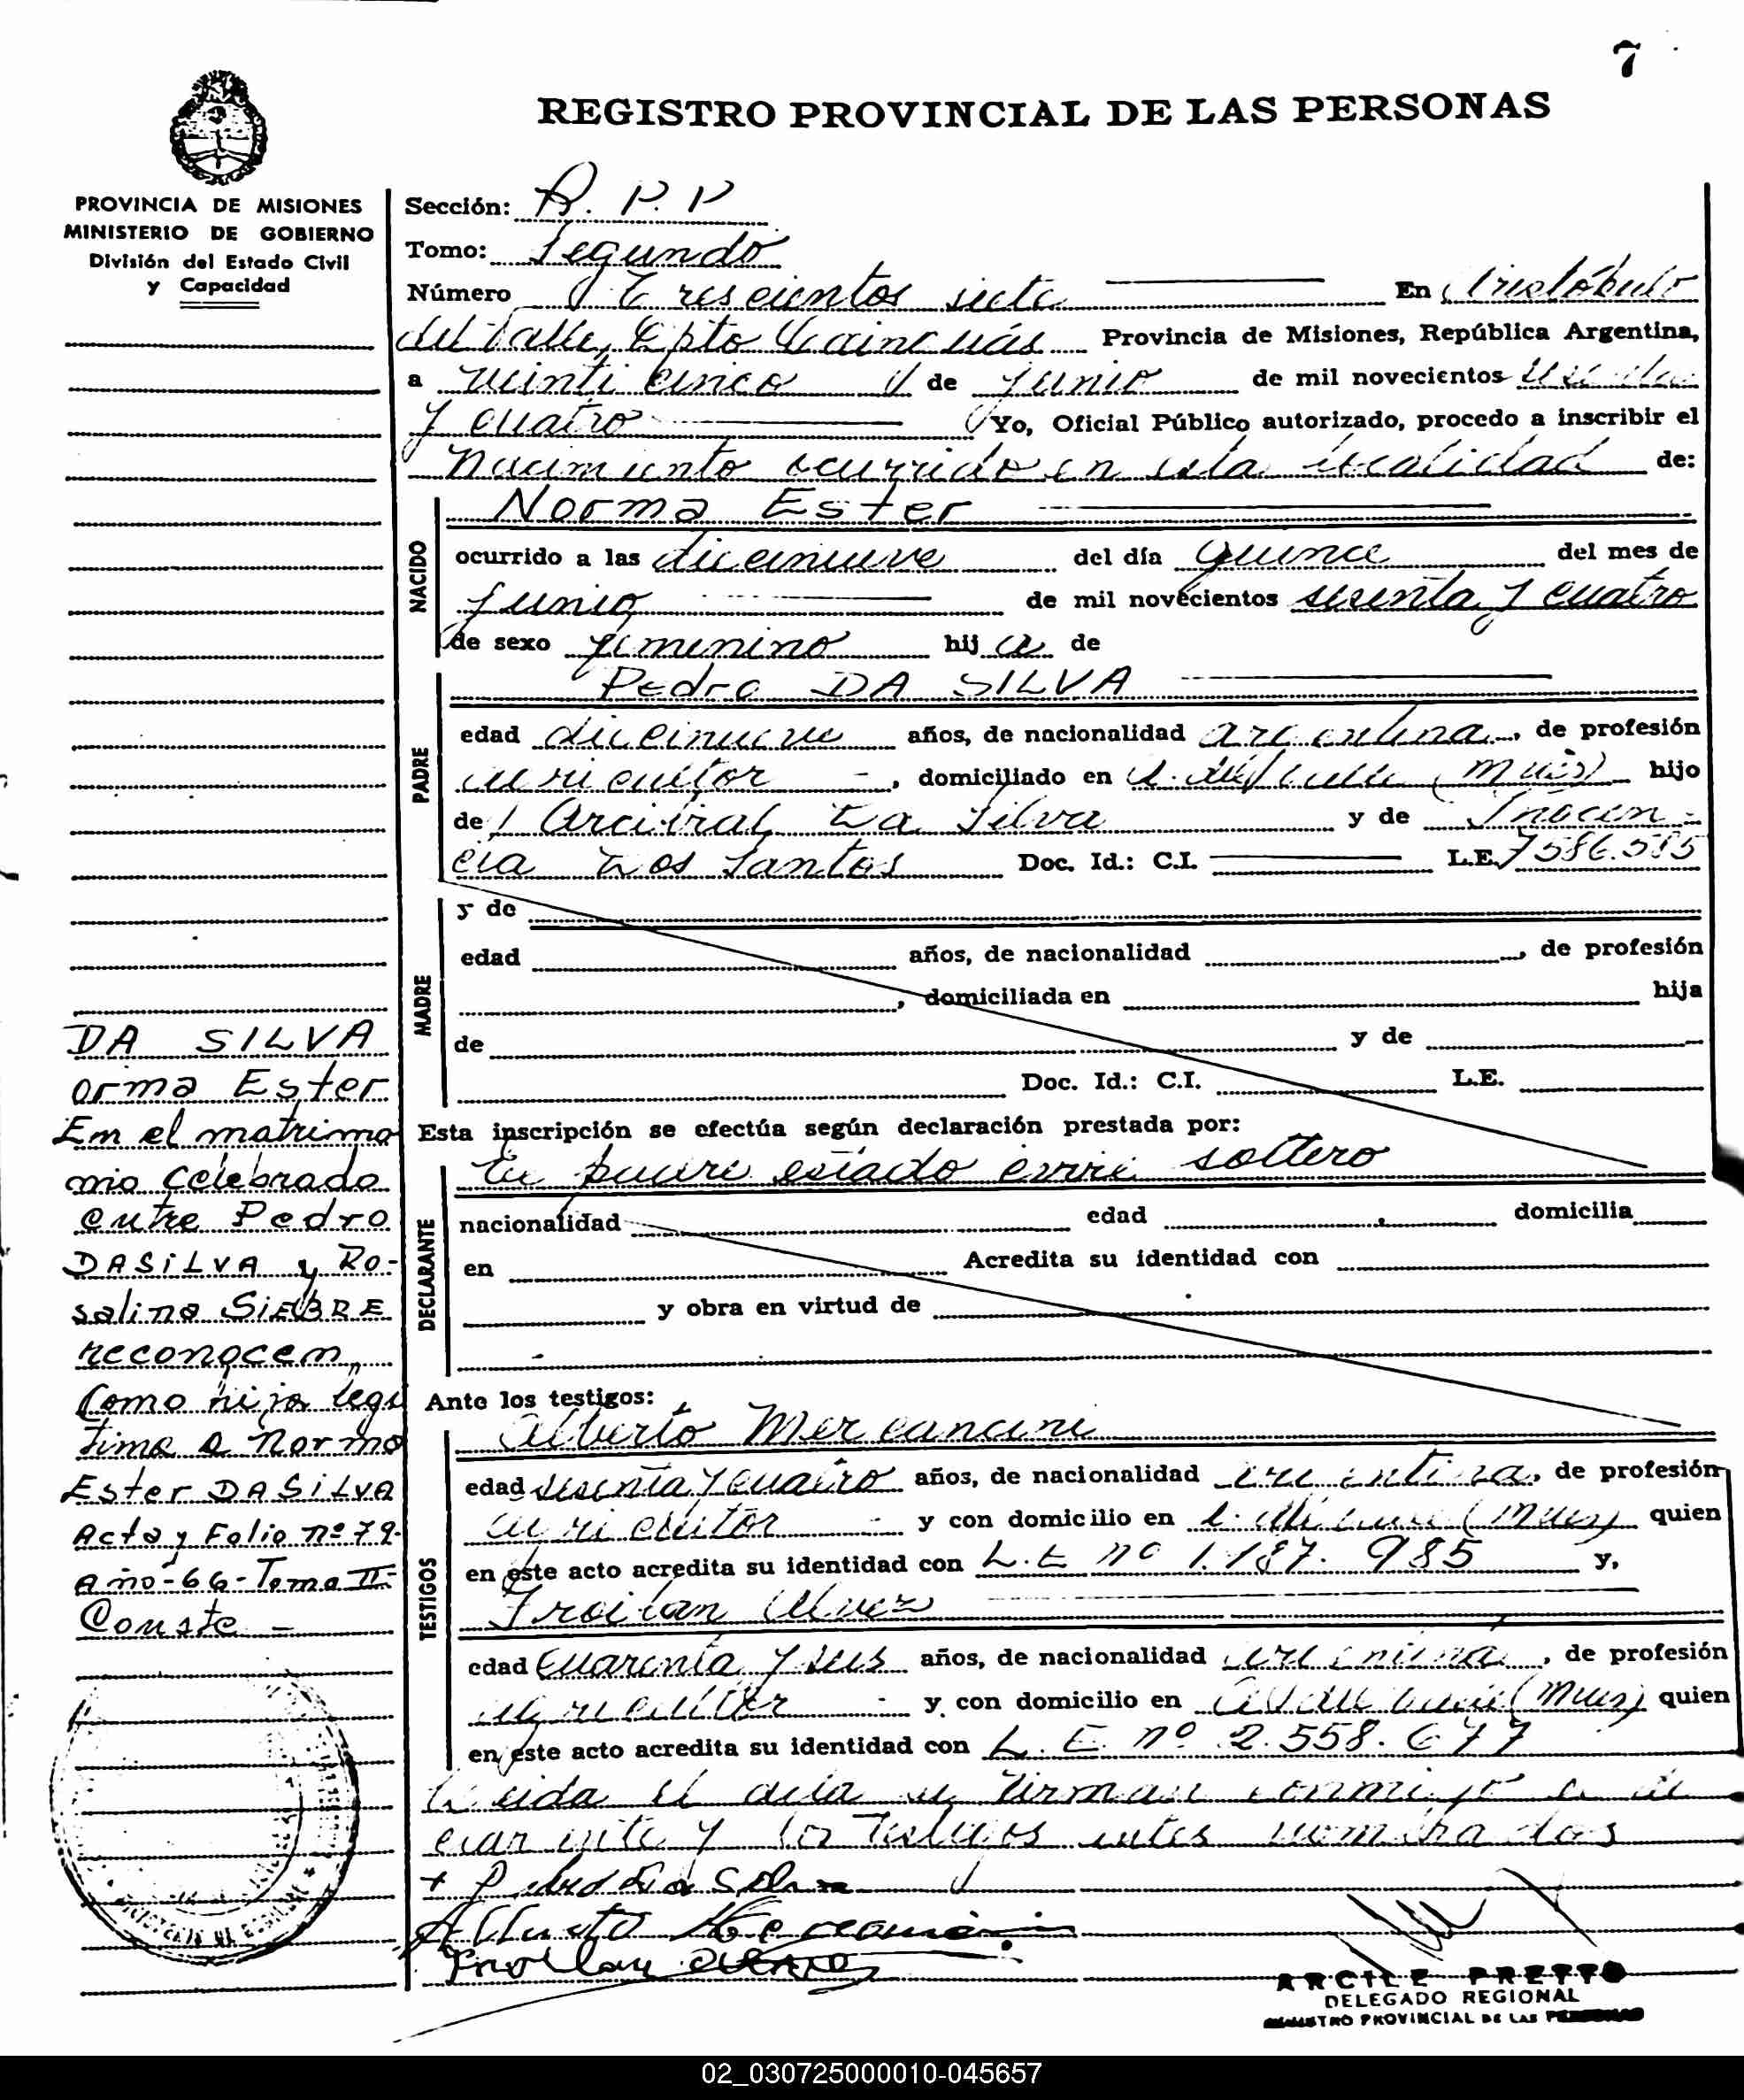 7
REGISTRO PROVINCIAL DE LAS PERSONAS
PROVINCIA DE MISIONES
MINISTERIO DE GOBIERNO
División del Estado Civil
y Capacidad
Sección: R. P. P
Tomo: Segundo
Número Trescientos siete En Aristóbulo
del Valle, Dpto Cainguás Provincia de Misiones, República Argentina,
a veinti cinco de junio de mil novecientos sesenta
y cuatro Yo, Oficial Público autorizado, procedo a inscribir el
nacimiento ocurrido en esta localidad de:
NACIDO
Norma Ester
ocurrido a las diecinueve del día quince del mes de
junio de mil novecientos sesenta y cuatro
de sexo femenino hij a de
PADRE
Pedro DA SILVA
edad diecinueve años, de nacionalidad argentina, de profesión
agricultor -, domiciliado en A. del Valle (Mnes) hijo
de Da Silva y de Inocen-
cia Dos Santos Doc. Id.: C.I. L.E. 7586.585
MADRE
y de
edad años, de nacionalidad , de profesión
, domiciliada en hija
de y de
Doc. Id.: C.I. L.E.
Esta inscripción se efectúa según declaración prestada por:
DECLARANTE
El padre estado civil soltero
nacionalidad edad domicilia
en Acredita su identidad con
y obra en virtud de
Ante los testigos:
TESTIGOS
Alberto
edad sesenta y cuatro años, de nacionalidad argentina, de profesión
agricultor - y con domicilio en A. del Valle (Mnes) quien
en este acto acredita su identidad con L.E nº 1.187.985 y,
Froilan Alvez
edad cuarenta y seis años, de nacionalidad argentina, de profesión
agricultor - y con domicilio en A. del Valle (Mnes) quien
en este acto acredita su identidad con L.E. nº 2.558.677
Leida el acta la firman conmigo el de
clarante y los testigos antes nombrados
DA SILVA
orma Ester
En el matrimo
nio celebrado
entre Pedro
DA SILVA y Ro-
salina SIEBRE
reconocen
Como hija legi
tima a Norma
Ester DA SILVA
Acta y Folio nº 79-
año-66-Tomo II-
Conste -
ARCILE PRETTO
DELEGADO REGIONAL
REGISTRO PROVINCIAL DE LAS PERSONAS
02_030725000010-045657